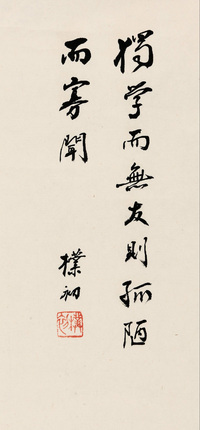 獨学而無友則孤陋
而寡聞
樸初